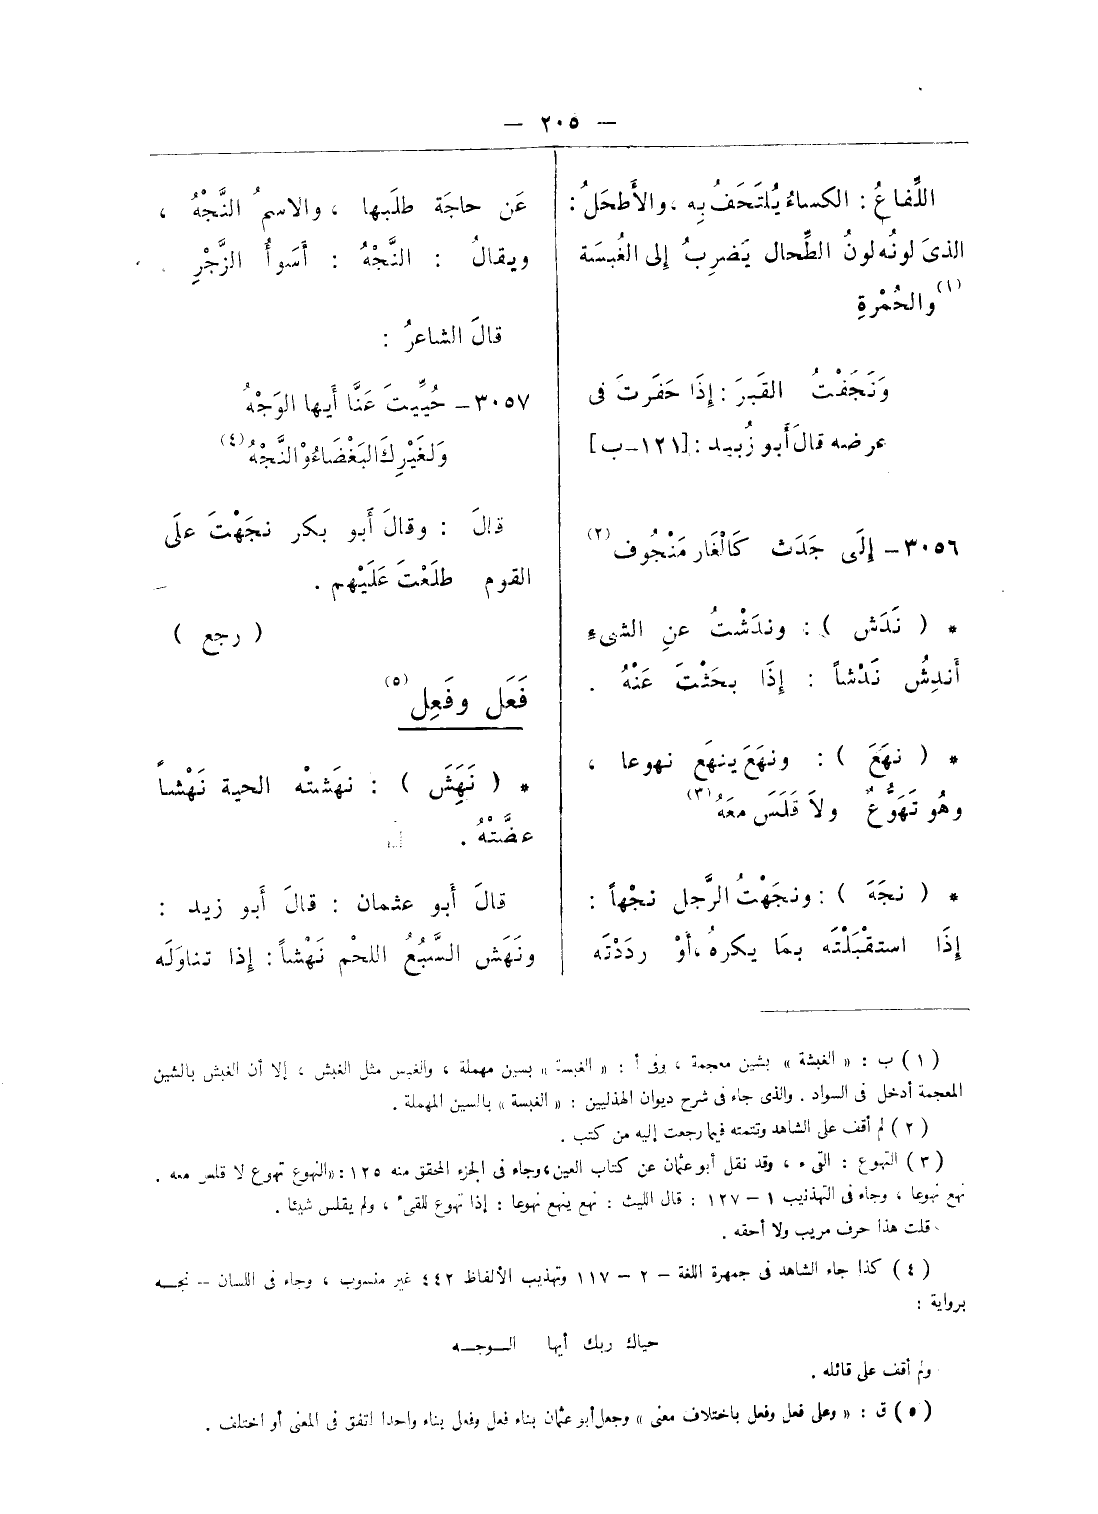 — ٢٠٥ —
اللِّفاعُ : الكساءُ يُلتَحَفُ بِه ، والأَطحَلُ :
الذى لونُه لونُ الطِّحال يَضرِبُ إلى الغُبسَة
والحُمْرةِ (١)
وَنَجَفْتُ القَبرَ : إِذَا حَفَرتَ فى
عرضه قالَ أَبو زُبيد : [١٢١ – ب]
٣٠٥٦ – إِلَى جَدَث كَالْغَار مَنْجُوف (٢)
* ( نَدَش ) : وندَشْتُ عنِ الشىءِ
أَندِشُ نَدْشاً : إِذَا بحَثْتَ عَنْهُ .
* ( نهَعَ ) : ونهَعَ ينهَع نهوعا ،
وهُو تَهَوُّعٌ ولاَ قَلَسَ معَهُ (٣)
* ( نجَهَ ) : ونجَهْتُ الرَّجل نجْهاً :
إِذَا استقْبَلْتَه بمَا يكرهُ ، أَوْ ردَدْتَه
عَن حاجَة طلَبها ، والاسمُ النَّجْهُ ،
ويقالُ : النَّجْهُ : أَسَوأُ الزَّجْرِ .
قالَ الشاعرُ :
٣٠٥٧ – حُيِّيتَ عَنَّا أَيها الوَجْهُ
وَلغَيْرِكَ البَغْضَاءُ والنَّجْهُ (٤)
قالَ : وقالَ أَبو بكر نجَهْتَ علَى
القوم طلَعْتَ عَلَيْهم .
( رجع )
فَعَل وفَعِل (٥)
* ( نَهَِش ) : نهَشتْه الحية نَهْشاً
عضَّتْهُ .
قالَ أَبو عثمان : قالَ أَبو زيد :
ونَهَش السَّبُعُ اللحْم نَهْشاً : إِذا تناوَلَه
( ١ ) ب : « الغبشة » بشين معجمة ، وفى أ : « الغبسة » بسين مهملة ، والغبس مثل الغبش ، إلا أن الغبش بالشين
المعجمة أدخل فى السواد . والذى جاء فى شرح ديوان الهذليين : « الغبسة » بالسين المهملة .
( ٢ ) لم أقف على الشاهد وتتمته فيما رجعت إليه من كتب .
( ٣ ) التهوع : القىء ، وقد نقل أبو عثمان عن كتاب العين ، وجاء فى الجزء المحقق منه ١٢٥ : « النهوع تهوع لا قلس معه .
نهع نهوعا ، وجاء فى التهذيب ١ – ١٢٧ : قال الليث : نهع ينهع نهوعا : إذا تهوع للقىء ، ولم يقلس شيئا .
قلت هذا حرف مريب ولا أحقه .
( ٤ ) كذا جاء الشاهد فى جمهرة اللغة – ٢ – ١١٧ وتهذيب الألفاظ ٤٤٢ غير منسوب ، وجاء فى اللسان – نجـــه
برواية :
حياك ربك أيها الـــوجـــه
ولم أقف على قائله .
( ٥ ) ق : « وعلى فعل وفعل باختلاف معنى » وجعل أبو عثمان بناء فعل وفعل بناء واحدا اتفق فى المعنى أو اختلف .